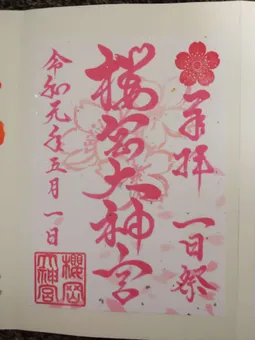 奉拝
一日祭
櫻岡大神宮
令和元年五月一日
櫻岡大神宮